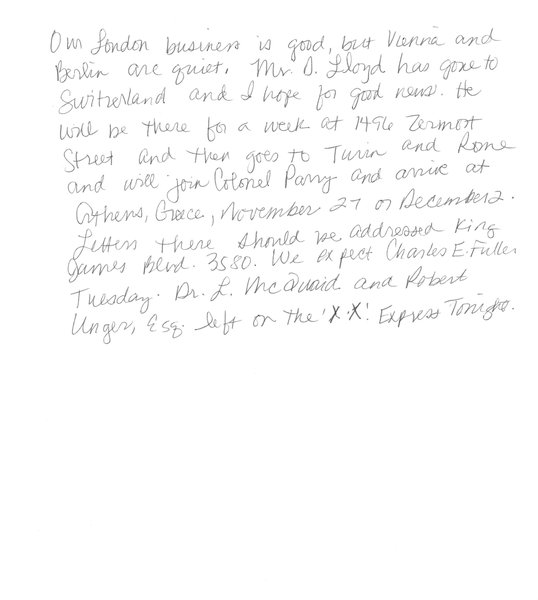 Our London business is good, but Vienna and
Berlin are quiet. Mr. D. Lloyd has gone to
Switzerland and I hope for good news. He
will be there for a week at 1496 Zermott
Street and then goes to Turin and Rome
and will join Colonel Parry and arrive at
Athens, Greece, November 27 or December 2.
Letters there should be addressed King
James Blvd. 3580. We expect Charles E. Fuller
Tuesday. Dr. L. McQuaid and Robert
Unger, Esq. left on the 'X.X.' Express Tonight.